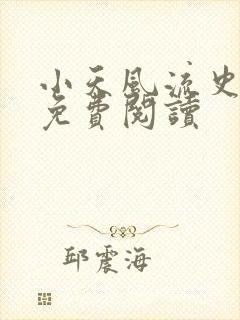 小天風流史
免費閱讀
邱震海